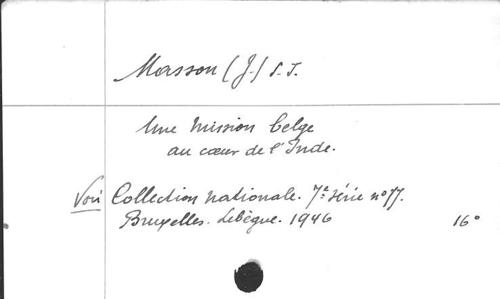 Masson (J.) S.J.
Une Mission belge
au cœur de l'Inde.
Voir Collection nationale. 7e série n°77.
Bruxelles. Lebègue. 1946 16°